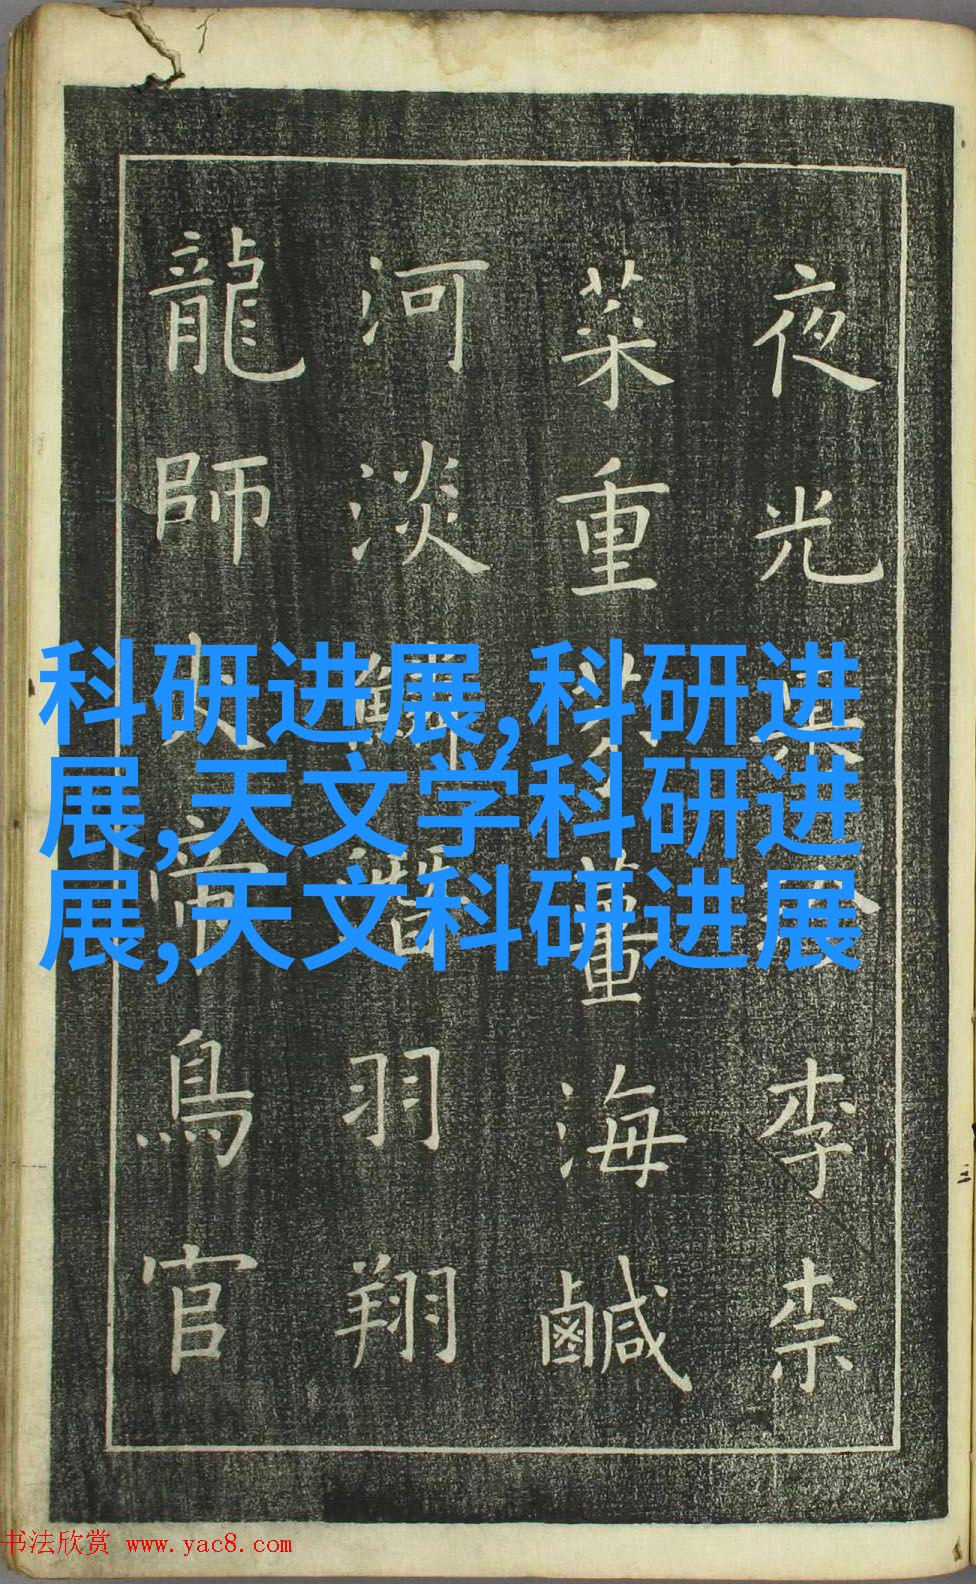 夜光果珍李柰
菜重芥薑海鹹
河淡鱗潛羽翔
龍師火帝鳥官
科研进展,科研进
展,天文学科研进
展,天文科研进展
书法欣赏 www.yac8.com